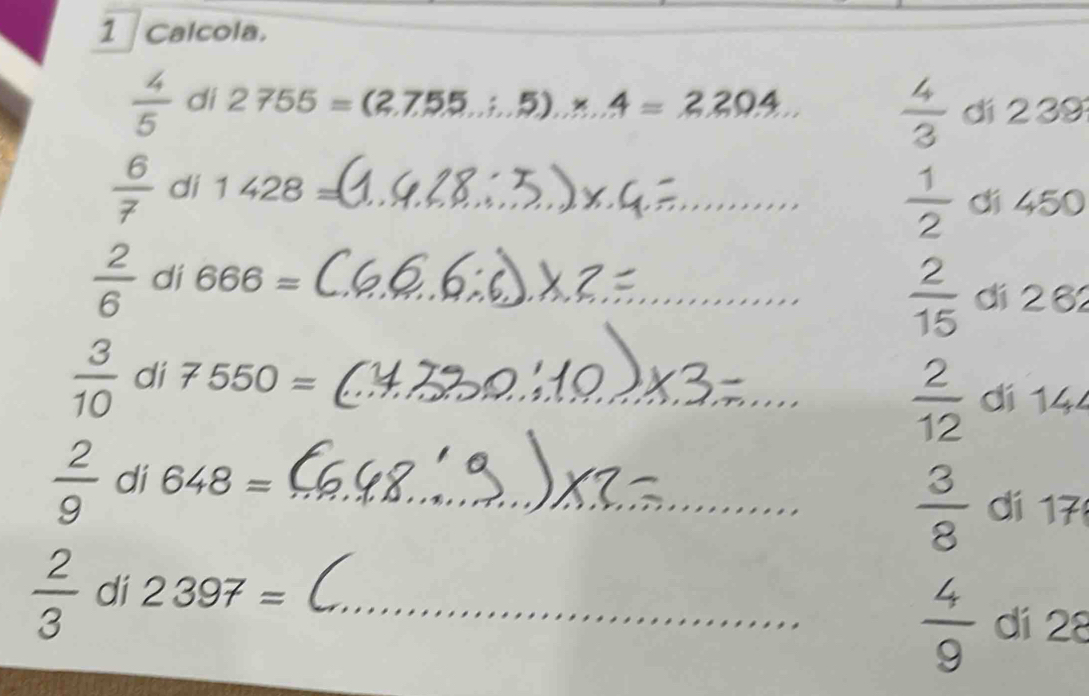 1 Calcola.
4/5 di 2 755 = (2.755 : 5) × 4 = 2.204
6/7 di 1 428 = (1.428 : 5) x 4 =
2/6 di 666 = (666 : 6) x 2 =
3/10 di 7 550 = (7.550 : 10) x 3 =
2/9 di 648 = (648 : 9) x 2 =
2/3 di 2 397 = (
4/3 di 239
1/2 di 450
2/15 di 262
2/12 di 144
3/8 di 17
4/9 di 28